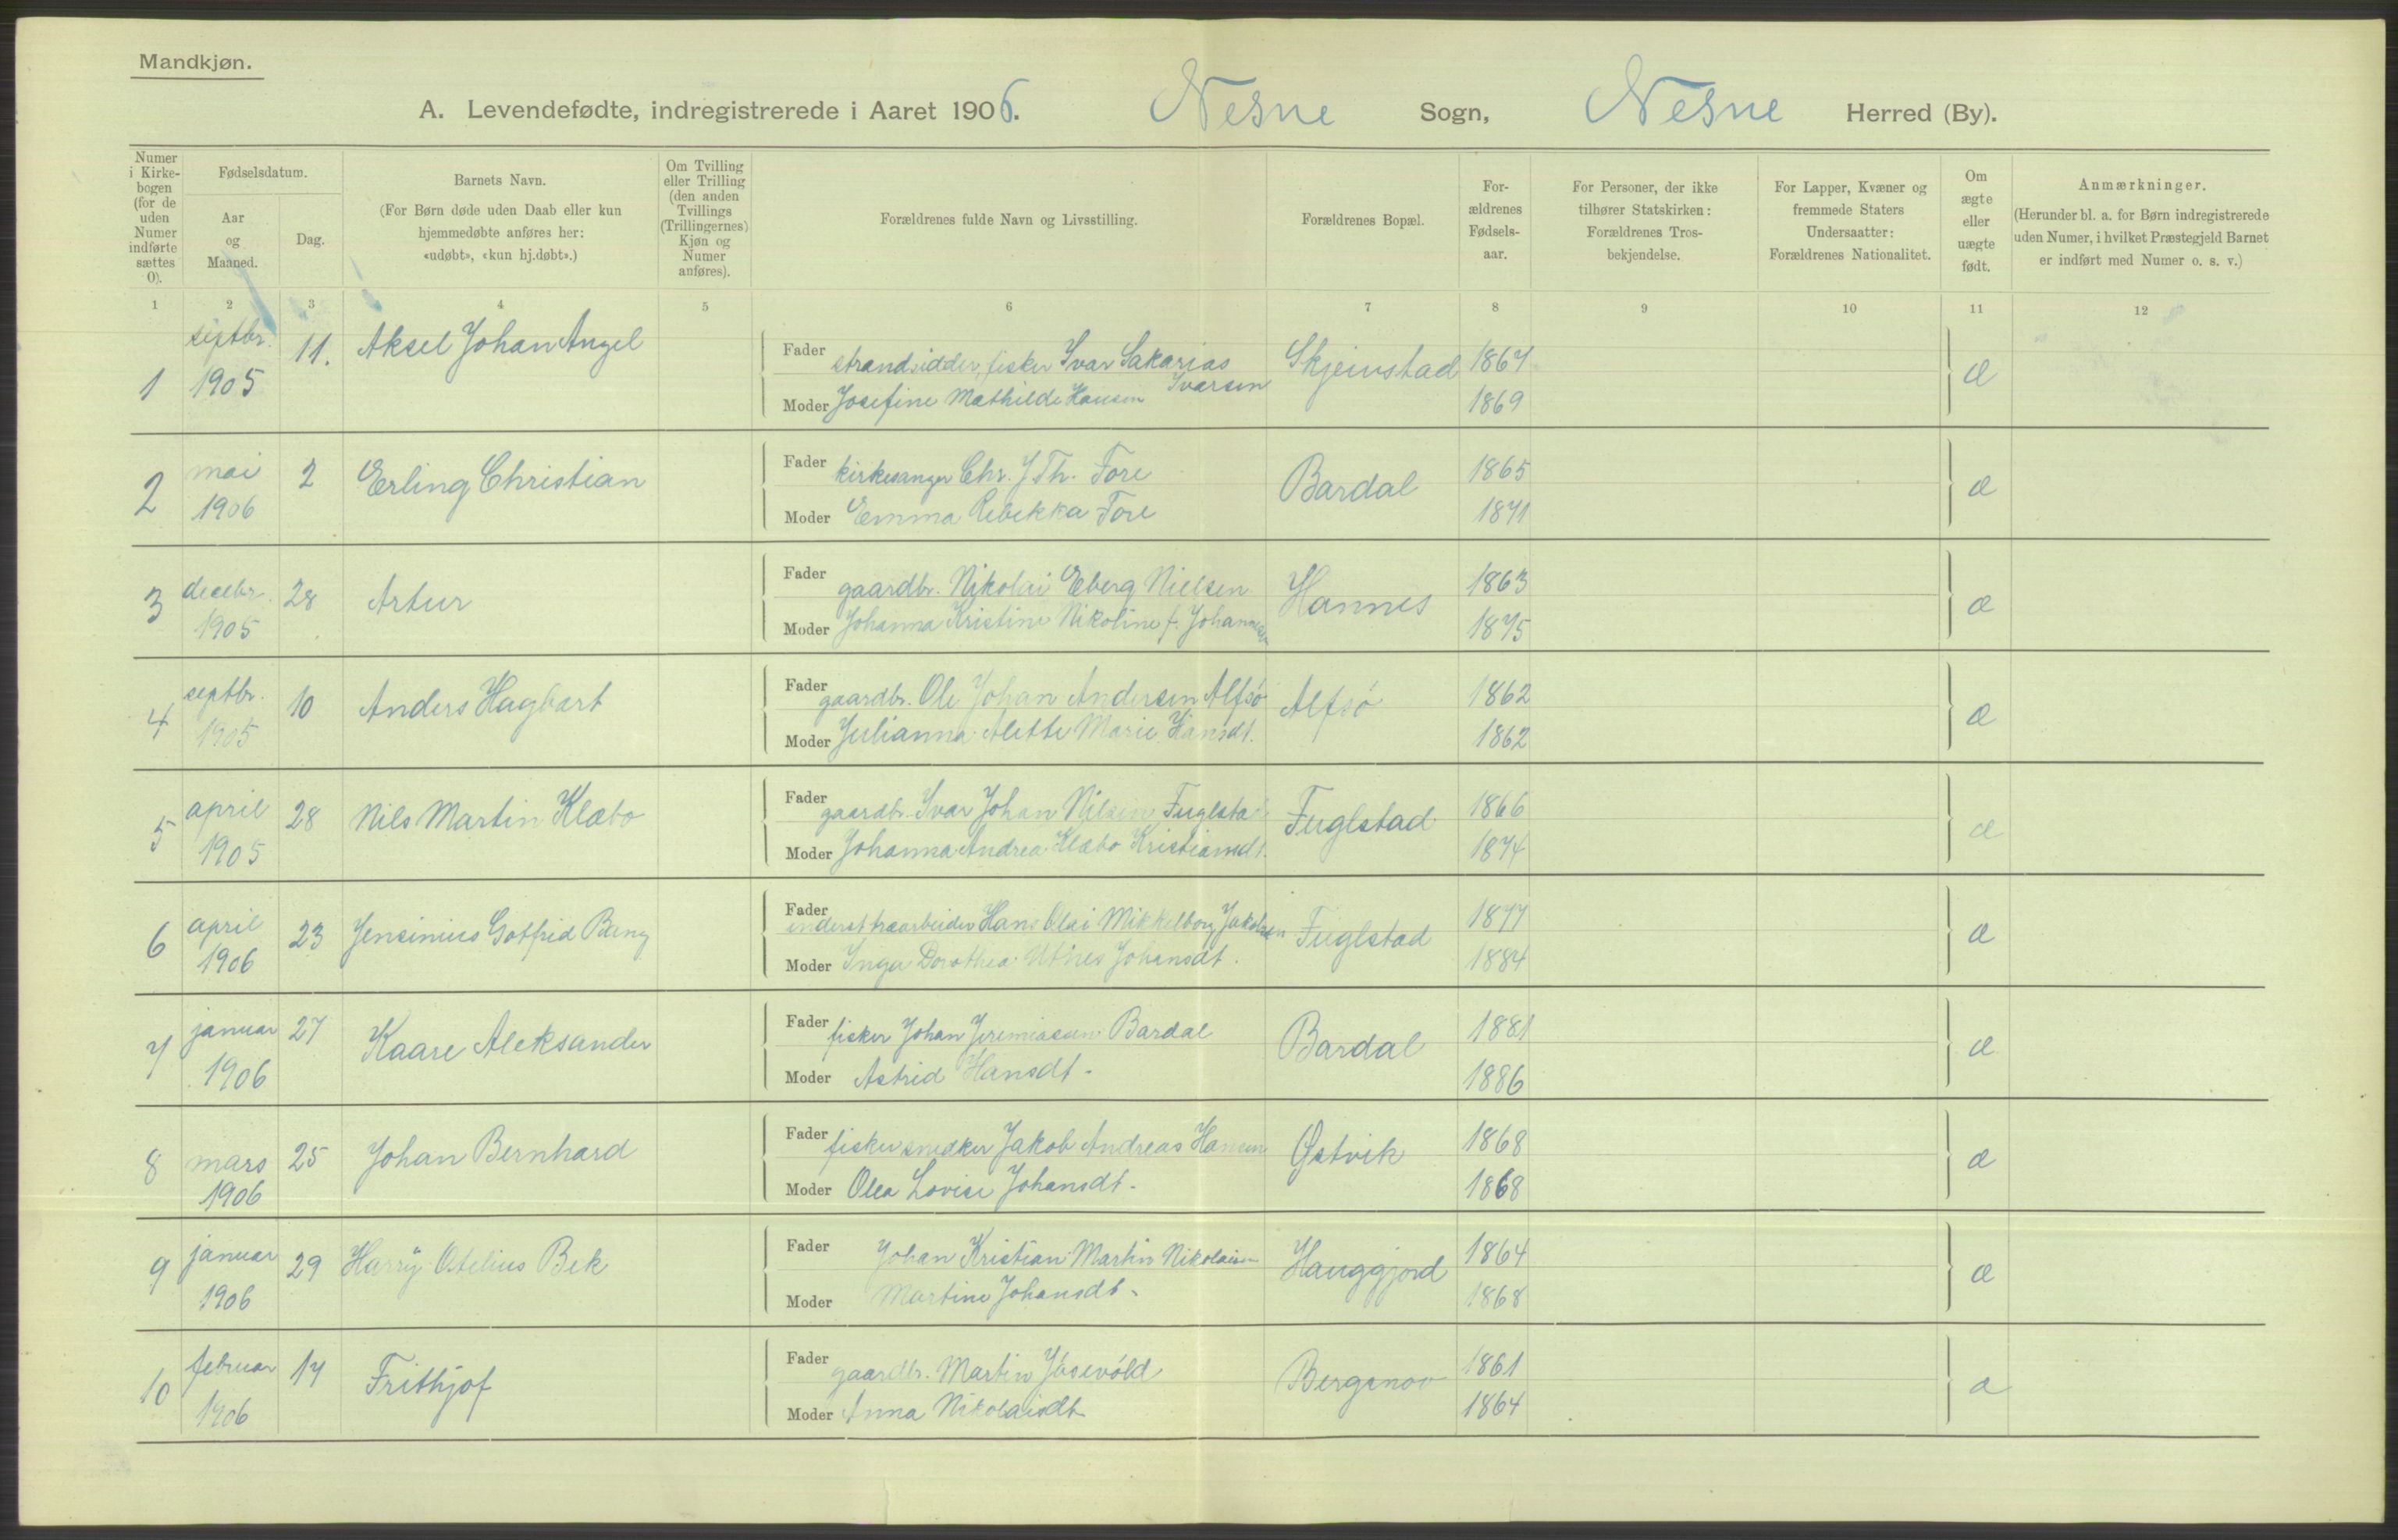 Mandkjøn.
A. Levendefødte, indregistrerede i Aaret 1906. Nesne Sogn, Nesne Herred (By).
Numer i Kirkebogen (for de uden Numer indførte sættes 0).
Fødselsdatum.
Aar og Maaned.
Dag.
Barnets Navn.
(For Børn døde uden Daab eller kun hjemmedøbte anføres her: «udøbt», «kun hj.døbt».)
Om Tvilling eller Trilling (den anden Tvillings (Trillingernes) Kjøn og Numer anføres).
Forældrenes fulde Navn og Livsstilling.
Forældrenes Bopæl.
Forældrenes Fødselsaar.
For Personer, der ikke tilhører Statskirken: Forældrenes Trosbekjendelse.
For Lapper, Kvæner og fremmede Staters Undersaatter: Forældrenes Nationalitet.
Om ægte eller uægte født.
Anmærkninger.
(Herunder bl. a. for Børn indregistrerede uden Numer, i hvilket Præstegjeld Barnet er indført med Numer o. s. v.)
1 2 3 4 5 6 7 8 9 10 11 12
1 septbr. 1905 11. Aksel Johan Angel
Fader strandsidder, fisker Ivar Sakarias Ivarsen Skjeinstad 1867 æ
Moder Josefine Mathilde Hansen 1869
2 mai 1906 2 Erling Christian
Fader kirkesanger Chr. J. Th. Fore Bardal 1865 æ
Moder Emma Rebekka Fore 1871
3 decbr. 1905 28 Artur
Fader gaardbr. Nikolai Eberg Nielsen Hannes 1863 æ
Moder Johanna Kristine Nikoline f. Johannesen 1875
4 septbr. 1905 10 Anders Hagbart
Fader gaardbr. Ole Johan Andersen Alfsö Alfsö 1862 æ
Moder Julianna Alette Marie Hansdt. 1862
5 april 1905 28 Nils Martin Klæbo
Fader gaardbr. Ivar Johan Nilsen Fuglstad Fuglstad 1866 æ
Moder Johanna Andrea Klæbo Kristiansdt. 1874
6 april 1906 23 Jensinius Gotfred Bang
Fader inderst træarbeider Hans Olai Mikkelborg Jakobsen Fuglstad 1877 æ
Moder Inga Dorothea Utnes Johansdt. 1884
7 januar 1906 27 Kaare Aleksander
Fader fisker Johan Jeremiassen Bardal Bardal 1881 æ
Moder Astrid Hansdt. 1886
8 mars 1906 25 Johan Bernhard
Fader fisker snedker Jakob Andreas Hansen Østvik 1868 æ
Moder Olea Lovise Johansdt. 1868
9 januar 1906 29 Harry Otelius Bek
Fader Johan Kristian Martin Nikolaisen Hauggjord 1864 æ
Moder Martine Johansdt. 1868
10 februar 1906 17 Frithjof
Fader gaardbr. Martin 1861 æ
Moder Anna Nikolaisdt. 1864